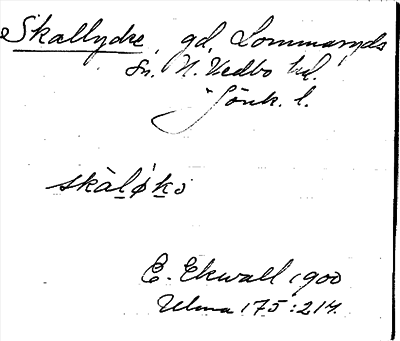 Skallycke, gd, Lommaryds
sn, N. Vedbo hd.
Jönk. l.
skàlø̀kə
E. Ekwall 1900
Ulma 175:217.